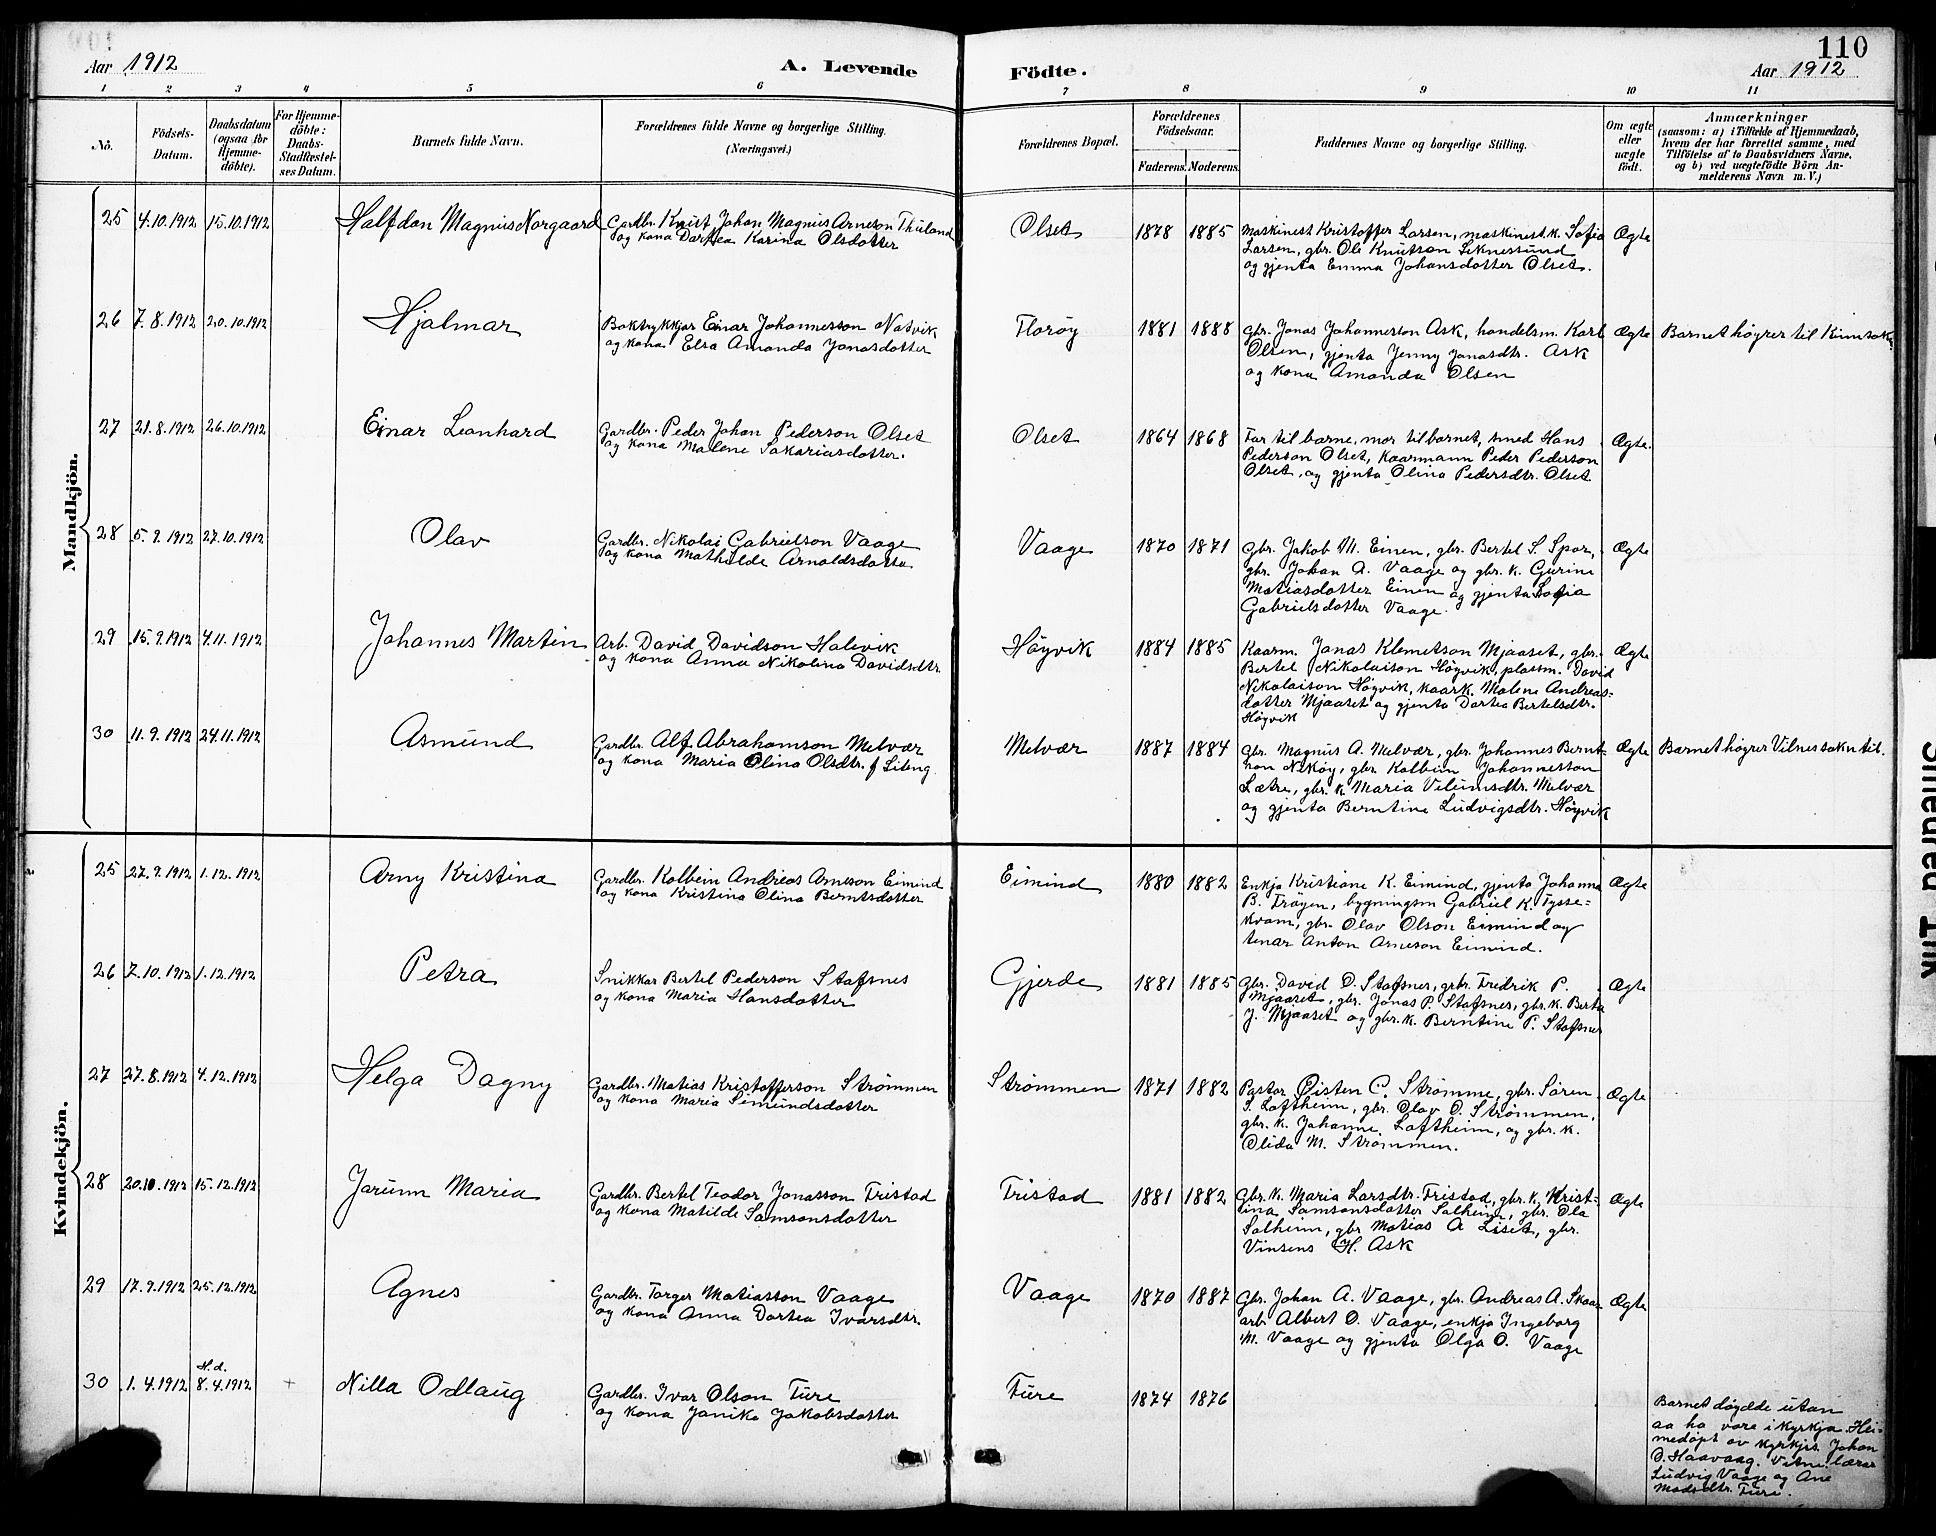 110
Aar 1912
A. Levende
Födte.
Aar 1912
1 2 3 4 5 6 7 8 9 10 11
No.
Födsels-
Datum.
Daabsdatum
(ogsaa for
Hjemme-
döbte).
For Hjemme-
döbte:
Daabs-
Stadfæstel-
ses Datum.
Barnets fulde Navn.
Forældrenes fulde Navne og borgerlige Stilling.
(Næringsvei.)
Forældrenes Bopæl.
Forældrenes
Födselsaar.
Faderens. Moderens.
Faddernes Navne og borgerlige Stilling.
Om ægte
eller
uægte
födt.
Anmærkninger
(saasom: a) i Tilfælde af Hjemmedaab,
hvem der har forrettet samme, med
Tilföielse af to Daabsvidners Navne,
og b) ved uægtefödte Börn An-
melderens Navn m. V.)
Mandkjön.
25 4.10.1912 15.10.1912 Halfdan Magnus Norgaard
Gardbr. Knut Johan Magnus Arneson Thuland
og kona Dortea Karina Olsdotter
Olset 1878 1885
Maskinist Kristoffer Larsen, maskinist.k. Sofia
Larsen, gbr. Ole Knutson Liknessund
og gjenta Emma Johansdotter Olset.
Ægte
26 7.8.1912 20.10.1912 Hjalmar
Boktrykkjar Einar Johannesson Natvik
og kona Elsa Amanda Jonasdotter
Florøy 1881 1888
gbr. Jonas Johanneson Ask, handelsm. Karl
Olsen, gjenta Jenny Jonasdtr. Ask
og kona Amanda Olsen
Ægte
Barnet høgrer til Kinnsokn
27 21.8.1912 26.10.1912 Einar Leonhard
Gardbr. Peder Johan Pederson Olset
og kona Malene Sakariasdotter.
Olset 1864 1868
Far til barne, mor til barnet, smed Hans
Pederson Olset, kaarmann Peder Pederson
Olset, og gjenta Olina Pedersdtr. Olset
Ægte.
28 5.9.1912 27.10.1912 Olav
Gardbr. Nikolai Gabrielson Vaage
og kona Mathilde Arnoldsdotter
Vaage 1870 1871
gbr. Jakob M. Einen, gbr. Bertel S. Spor,
gbr. Johan A. Vaage og gbr. k. Gurine
Matiasdotter Einen og gjenta Sofia
Gabrielsdotter Vaage.
Ægte
29 15.9.1912 4.11.1912 Johannes Martin
Arb. David Davidson Halsvik
og kona Anna Nikolina Davidsdtr.
Høyvik 1884 1885
Kaarm. Jonas Klemetson Mjaaset, gbr.
Bertel Nikolaison Høyvik, plassm. David
Nikolaison Høyvik, kaark. Malene Andreas-
dotter Mjaaset og gjenta Dortea Bertelsdtr.
Høyvik
Ægte
30 11.9.1912 24.11.1912 Asmund
Gardbr. Alf Abrahamson Melvær
og kona Maria Olina Olsdtr. f Liteng
Melvær 1887 1884
gbr. Magnus A. Melvær, gbr. Johannes Bernt-
son Nekøy, gbr. Kolbein Johannesson
Lætre, gbr. k Maria Vileumsdtr. Melvær
og gjenta Berntine Ludvigsdtr. Høyvik
Ægte
Barnet høgrer Vilnes sokn til.
Kvindekjön.
25 27.9.1912 1.12.1912 Arny Kristina
Gardbr. Kolbein Andreas Arneson Eimind
og kona Kristina Olina Berntsdotter
Eimind 1880 1882
Enkja Kristiane K. Eimind, gjenta Johanna
B. Frøyen, bygningsm Gabriel K. Tysse-
kvam, gbr. Olav Olson Eimind og
tenar Anton Arneson Eimind.
Ægte
26 7.10.1912 1.12.1912 Petra
Snikkar Bertel Pederson Stafsnes
og kona Maria Hansdotter
Gjerde 1881 1885
gbr. David D. Stafsnes, gbr. Fredrik P.
Mjaaset, gbr. Jonas P. Stafsnes, gbr. k. Berta
J. Mjaaset og gbr. k. Berntine P. Stafsnes
Ægte
27 27.8.1912 4.12.1912 Helga Dagny
Gardbr. Matias Kristofferson Strømmen
og kona Maria Simundsdotter
Strømmen 1871 1882
Pastor Øisten C. Strømme, gbr. Søren
S. Loftheim, gbr. Olav O. Strømmen,
gbr. k. Johanne Loftheim, og gbr. k.
Olida M. Strømmen.
Ægte
28 20.10.1912 15.12.1912 Jorunn Maria
Gardbr. Bertel Teodor Jonasson Fristad
og kona Matilde Samsonsdotter
Fristad 1881 1882
Gbr. k. Maria Larsdtr. Fristad, gbr. k, Krist-
ina Samsonsdotter Solheim, gbr. Ola
Solheim, gbr Matias A Liset, gbr.
Vinsens H. Ask
Ægte
29 17.9.1912 25.12.1912 Agnes
Gardbr. Torger Matiasson Vaage
og kona Anna Dortea Ivarsdtr.
Vaage 1870 1887
Gbr. Johan A. Vaage, gbr. Andreas A. Skaar
arb Albert O. Vaage, enkja Ingeborg
M. Vaage og gjenta Olga O. Vaage
Ægte
30 1.4.1912 H.d. 8.4.1912 + Nilla Odlaug
Gardbr. Ivar Olson Fure
og kona Janika Jakobsdotter
Fure 1874 1876
Barnet døydde utan
aa ha vore i kyrkja. Hei-
medøpt av kyrkjes. Johan
O. Haavaag. Vitne: lærar
Ludvig Vaage og Ane
Madsdtr. Fure.